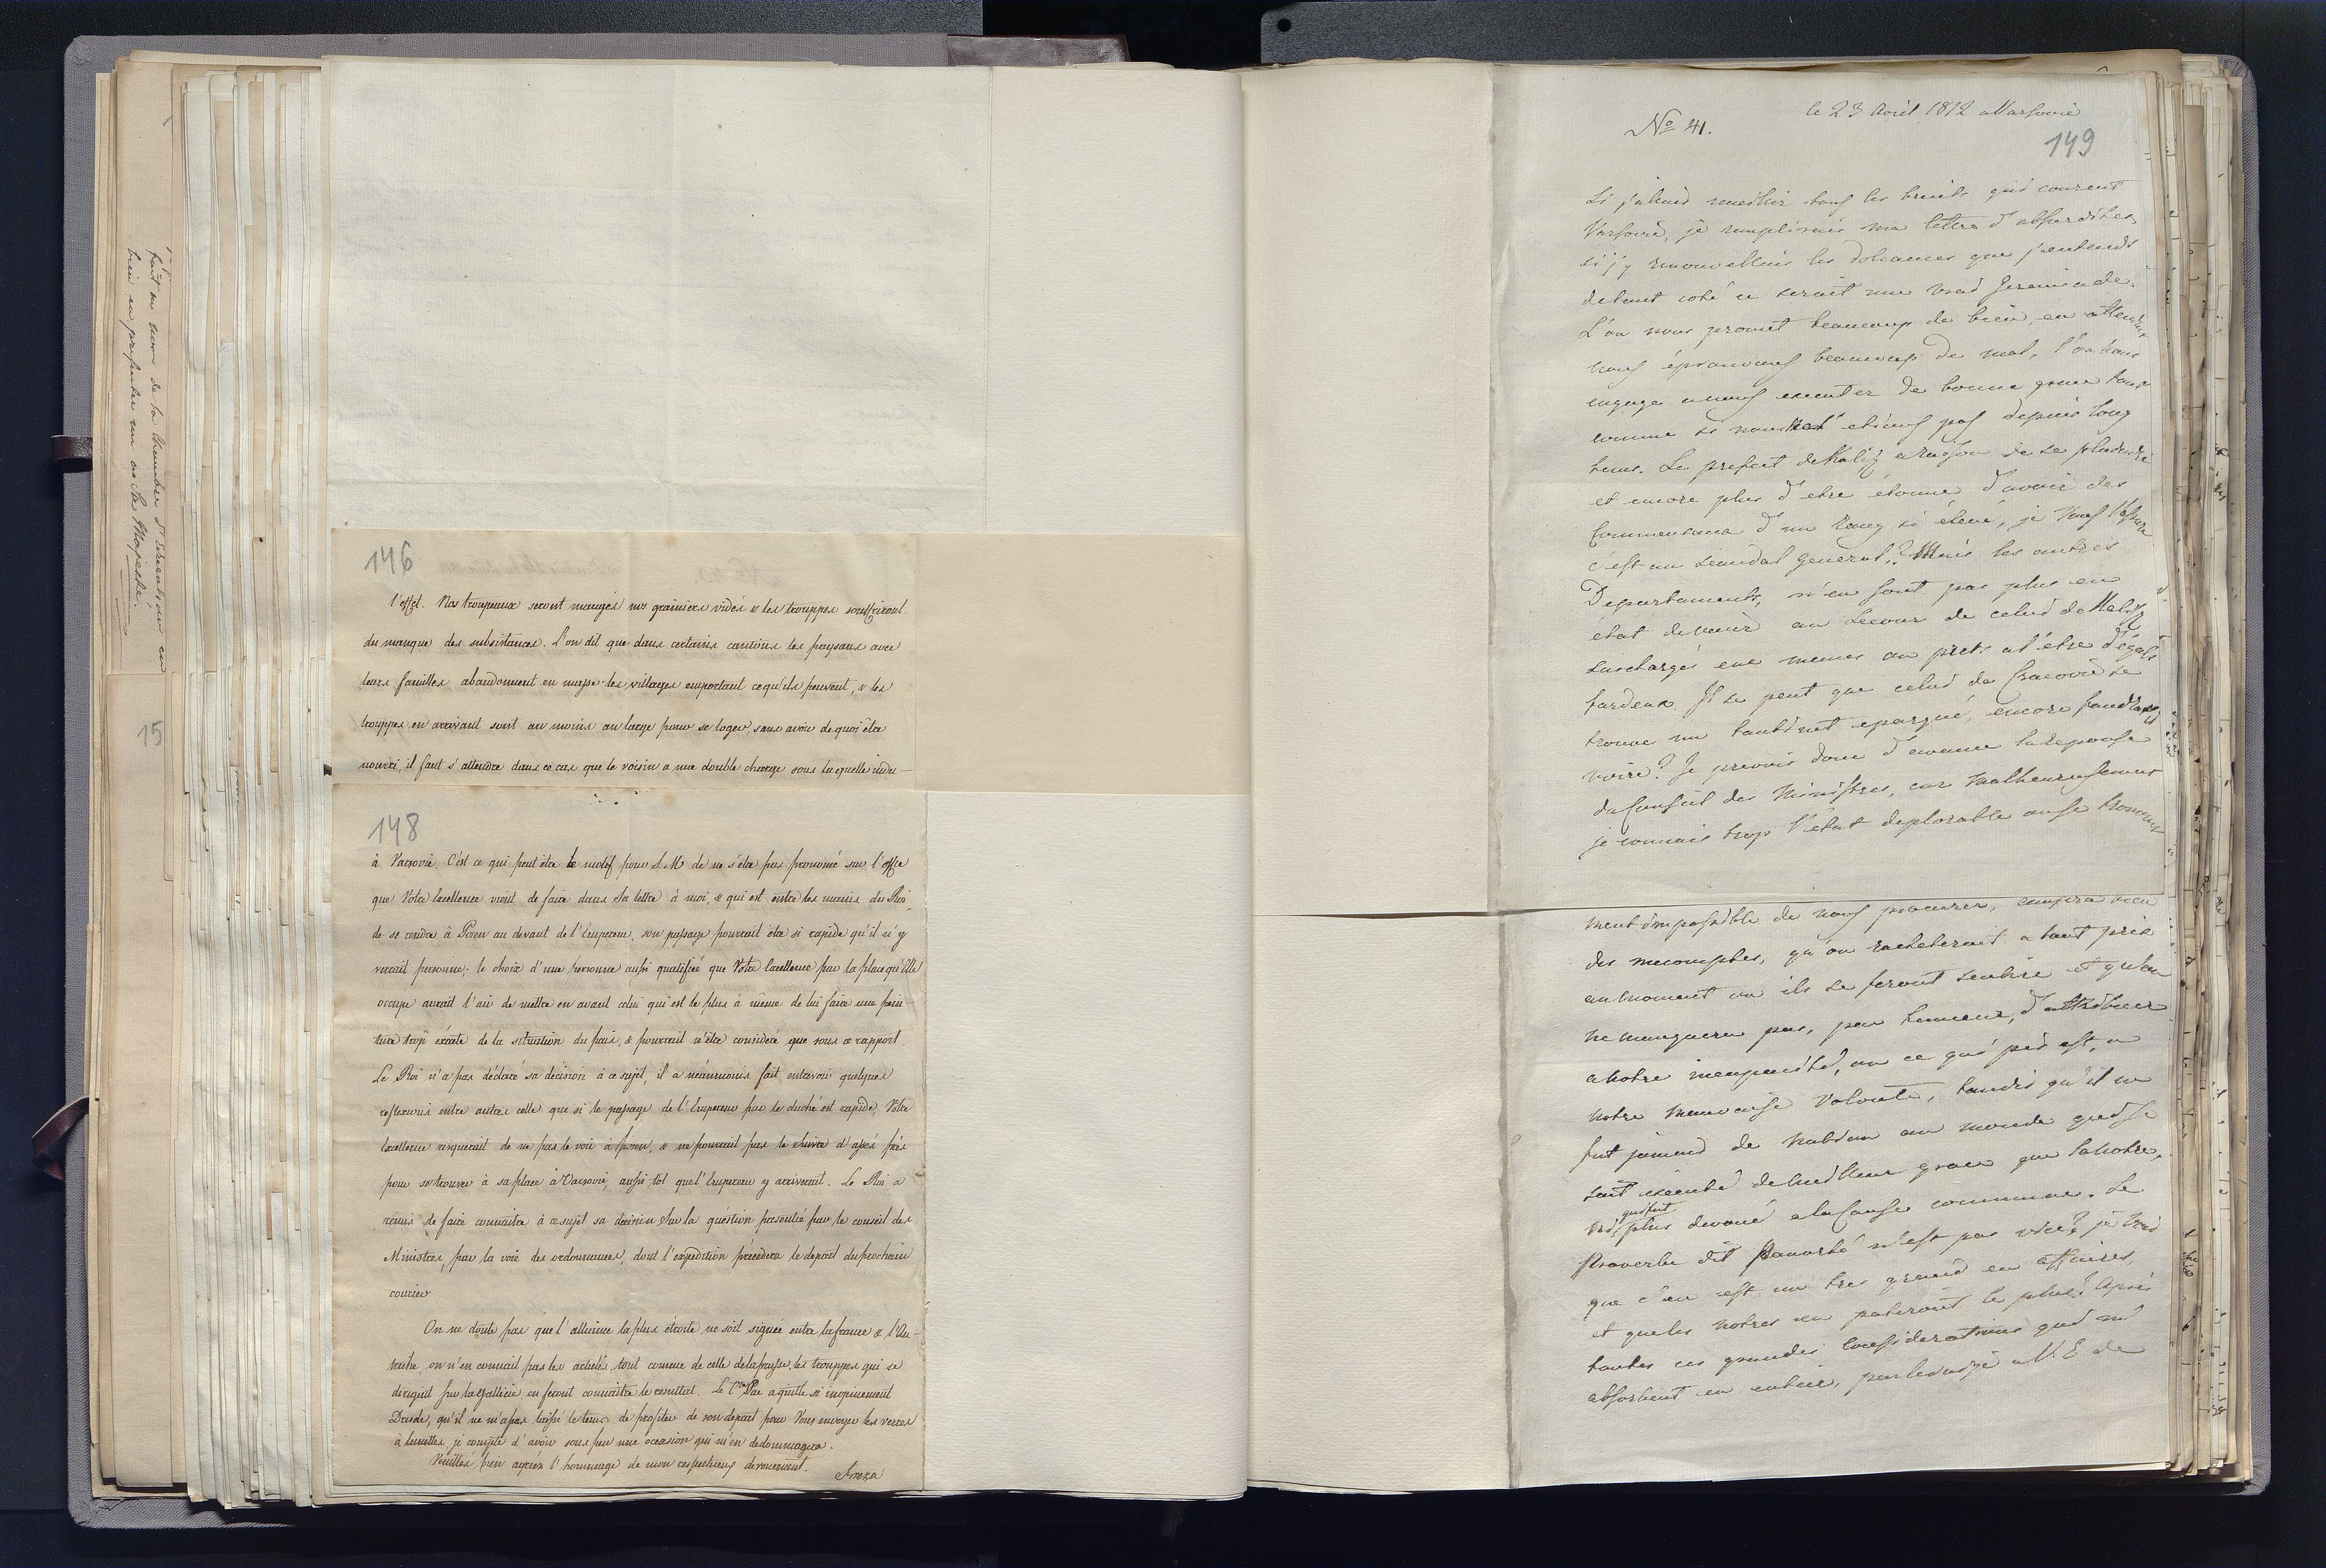 fait au nom de la chambre d'Instruction en
bien en presenter un au Sa Majesté.
15
146
l'effet. Nos troupeaux seront mangés nos greniers vidés & les trouppes souffriront
du manque des subsistances. L'on dit que dans certains cantons les paysans avec
leurs familles abandonnent en masse les villages emportant ce qu'ils peuvent, & les
trouppes en arrivant sont au moins au large pour se loger sans avoir de quoi être
nourri, il faut s'attendre dans ce cas que le voisin a une double charge sous laquelle
148
à Varsovie. C'est ce qui peut être le motif pour S. M. de ne s'être pas prononcé sur l'offre
que Votre Excellence vient de faire dans Sa lettre à moi, & qui est entre les mains du Roi,
de se rendre à Posen au devant de l'Empereur, son passage pourrait être si rapide qu'il n'y
verrait personne; le choix d'une personne aussi qualifiée que Votre Excellence par la place qu'Elle
occupe aurait l'air de mettre en avant celui qui est le plus à même de lui faire une pein-
ture trop exacte de la situation du païs, & pourrait n'être consideré que sous ce rapport.
Le Roi n'a pas déclaré sa décision à ce sujet, il a néanmoins fait entrevoir quelques
reflexions entre autres celle que si le passage de l'Empereur par le duché est rapide, Votre
Excellence risquerait de ne pas le voir à Posen, & ne pourrait pas le suivre d'assés près
pour se trouver à sa place à Varsovie, aussi tôt que l'Empereur y arriverait. Le Roi a
remis de faire connaitre à ce sujet sa decision sur la question presentée par le conseil des
Ministres, par la voie des ordonnances, dont l'expedition précedera le depart du prochain
courier
On ne doute pas que l'alliance la plus étroite ne soit signée entre la france & l'Au-
triche, on n'en connait pas les articles, tout comme de celle de la prusse, les trouppes qui se
dirigent sur la Gallicie en feront connaitre le resultat. Le Cte Pac a quitté si inopinement
Dresde, qu'il ne m'a pas laissé le tems de profiter de son depart pour Vous envoyer les verres
à lunettes, je compte d'avoir sous peu une occasion qui m'en dedommagera.
Veuillés bien agréer l'hommage de mon respectueux devouement.
Breza
No 41.
le 23 Avril 1812 a Varsovie
149
Si j'allais receuillir tous les bruits qui courent
Varsovie, je remplirais ma lettre d'absurdités
si j'y renouvellais les doleances que j'entends
de tout coté ce serait une vrai Jeremiade.
L'on nous promet beaucoup de bien, en attendant
nous éprouvons beaucoup de mal, l'on nous
engage a nous executer de bonne grace tout
comme si nous n'etions pas depuis long
tems. Le prefect de Kalisz a raison de se plaindre
et encore plus d'etre étonné d'avoir des
Commensaux d'un rang si élevé, je Vous l'assure
c'est un scandal general. Mais les autres
Departaments, n'en sont pas plus en
état de venir au secour de celui de Kalisz
surchargés eux memes ou prets a l'être d'égals
fardeaux. Il se peut que celui de Cracovie se
trouve un tantinet epargné, encore faudra
voire? Je prevois donc d'avance la reponse
du Conseil des Ministres, car malheureusement
je connais trop l'état deplorable ou se trouvent
ment impossible de nous procurer,
des mecomptes, qu'on racheterait a tout prix
au moment ou ils se feront sentire et qu'on
ne manquera pas, par humeur, d'attribuer
a notre incapacité, ou ce qui pis est, a
notre mauvaise Volonté, tandis qu'il ne
fut jamais de Nation au monde qui se
soit executé de meilleur grace que la notre,
ni qui fut plus devoué a la Cause commune. Le
Proverbe dit Pauvreté n'est pas vice, je crois
que c'en est un tres grand en affaires,
et que les notres en patiront le plus? Après
toutes ces grandes Considerations qui m'
absorbent en entier, parlerai-je a V. E de